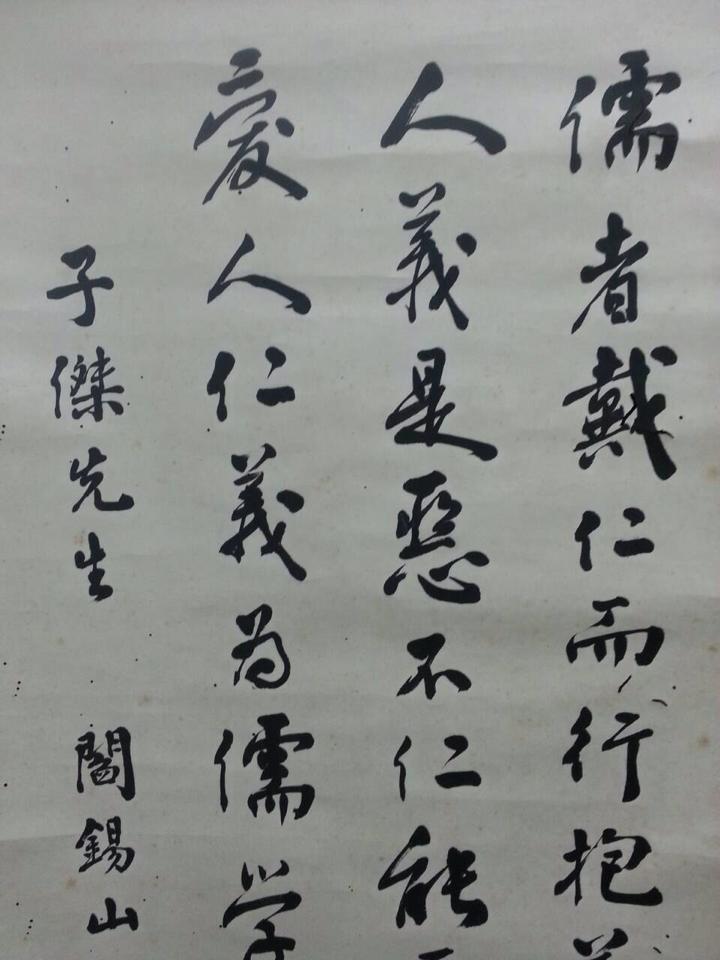 儒者戴仁而行抱
人義是惡不仁能
愛人仁義為儒学
子傑先生 閻錫山